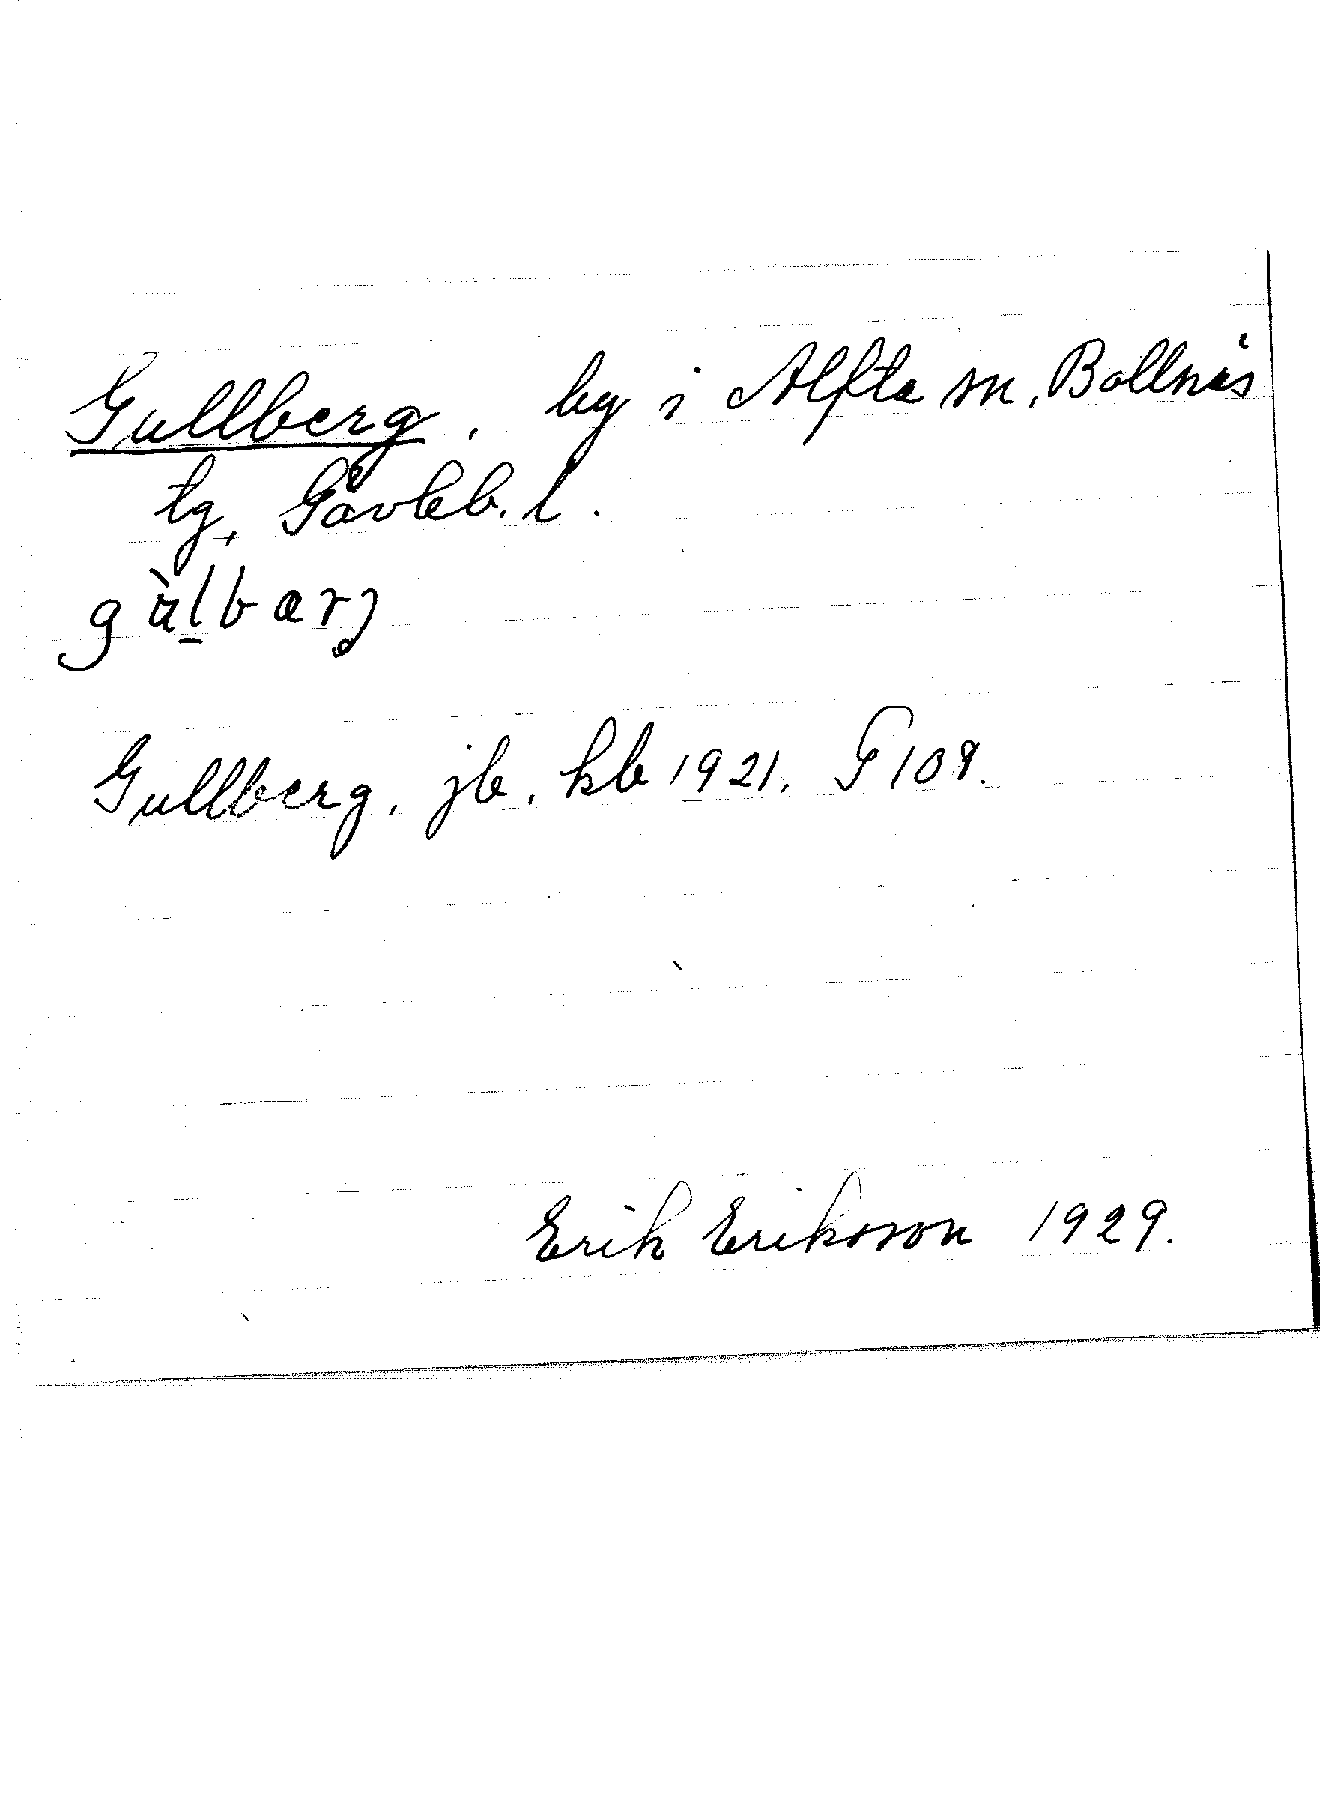 Gullberg, by i Alfta sn, Bollnäs
tg, Gävleb. l.
gùlbarj
Gullberg, jb, kb 1921. G 108.
Erik Eriksson 1929.